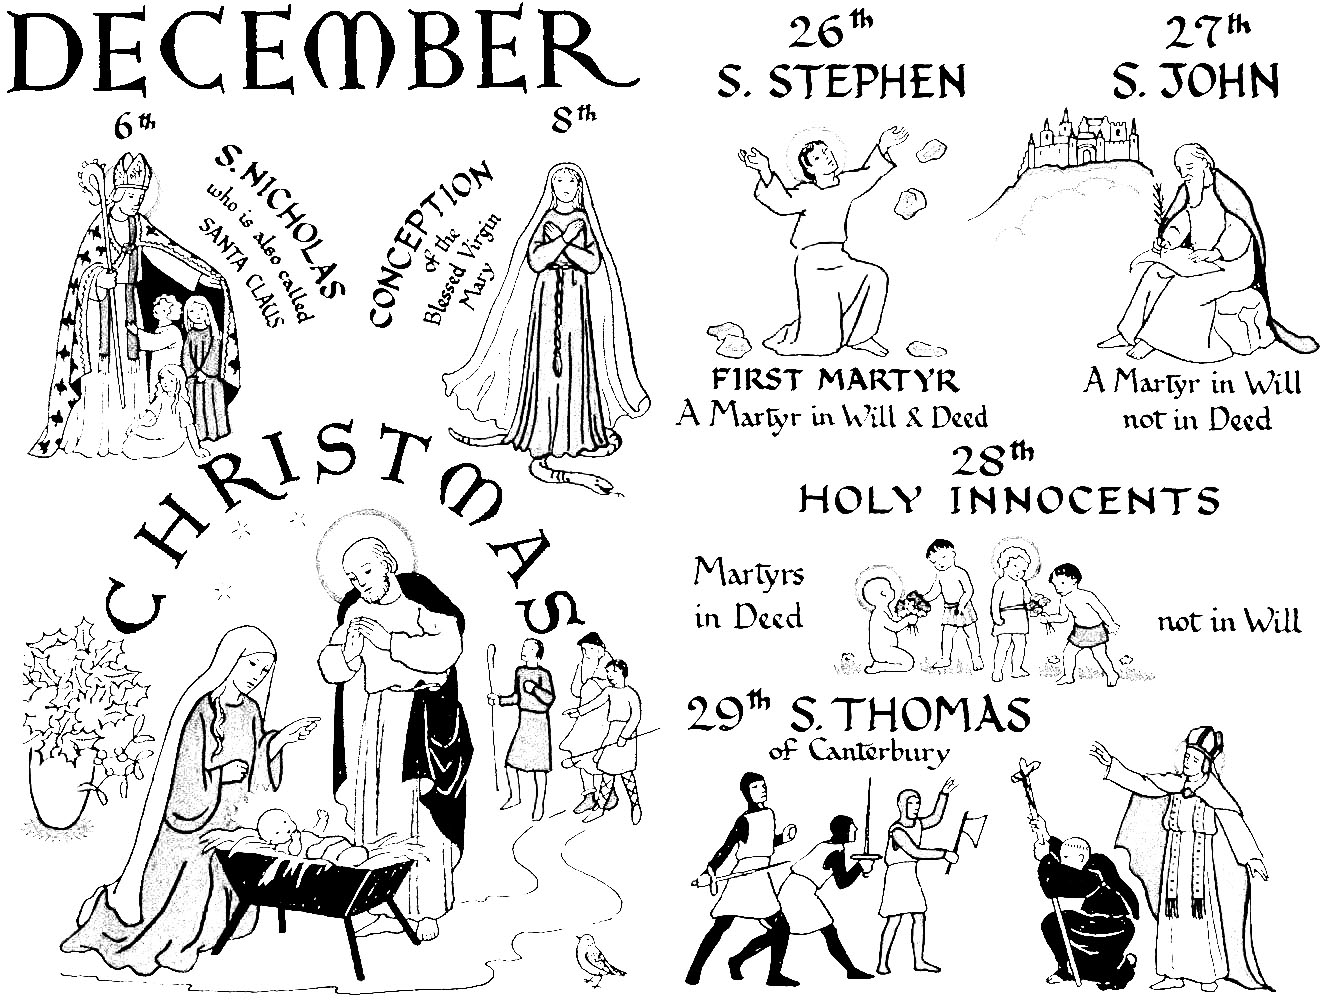 DECEMBER
6th
S. NICHOLAS
who is also called
SANTA CLAUS
8th
CONCEPTION
of the
Blessed Virgin
Mary
CHRISTMAS
26th
S. STEPHEN
FIRST MARTYR
A Martyr in Will & Deed
27th
S. JOHN
A Martyr in Will
not in Deed
28th
HOLY INNOCENTS
Martyrs
in Deed
not in Will
29th S. THOMAS
of Canterbury